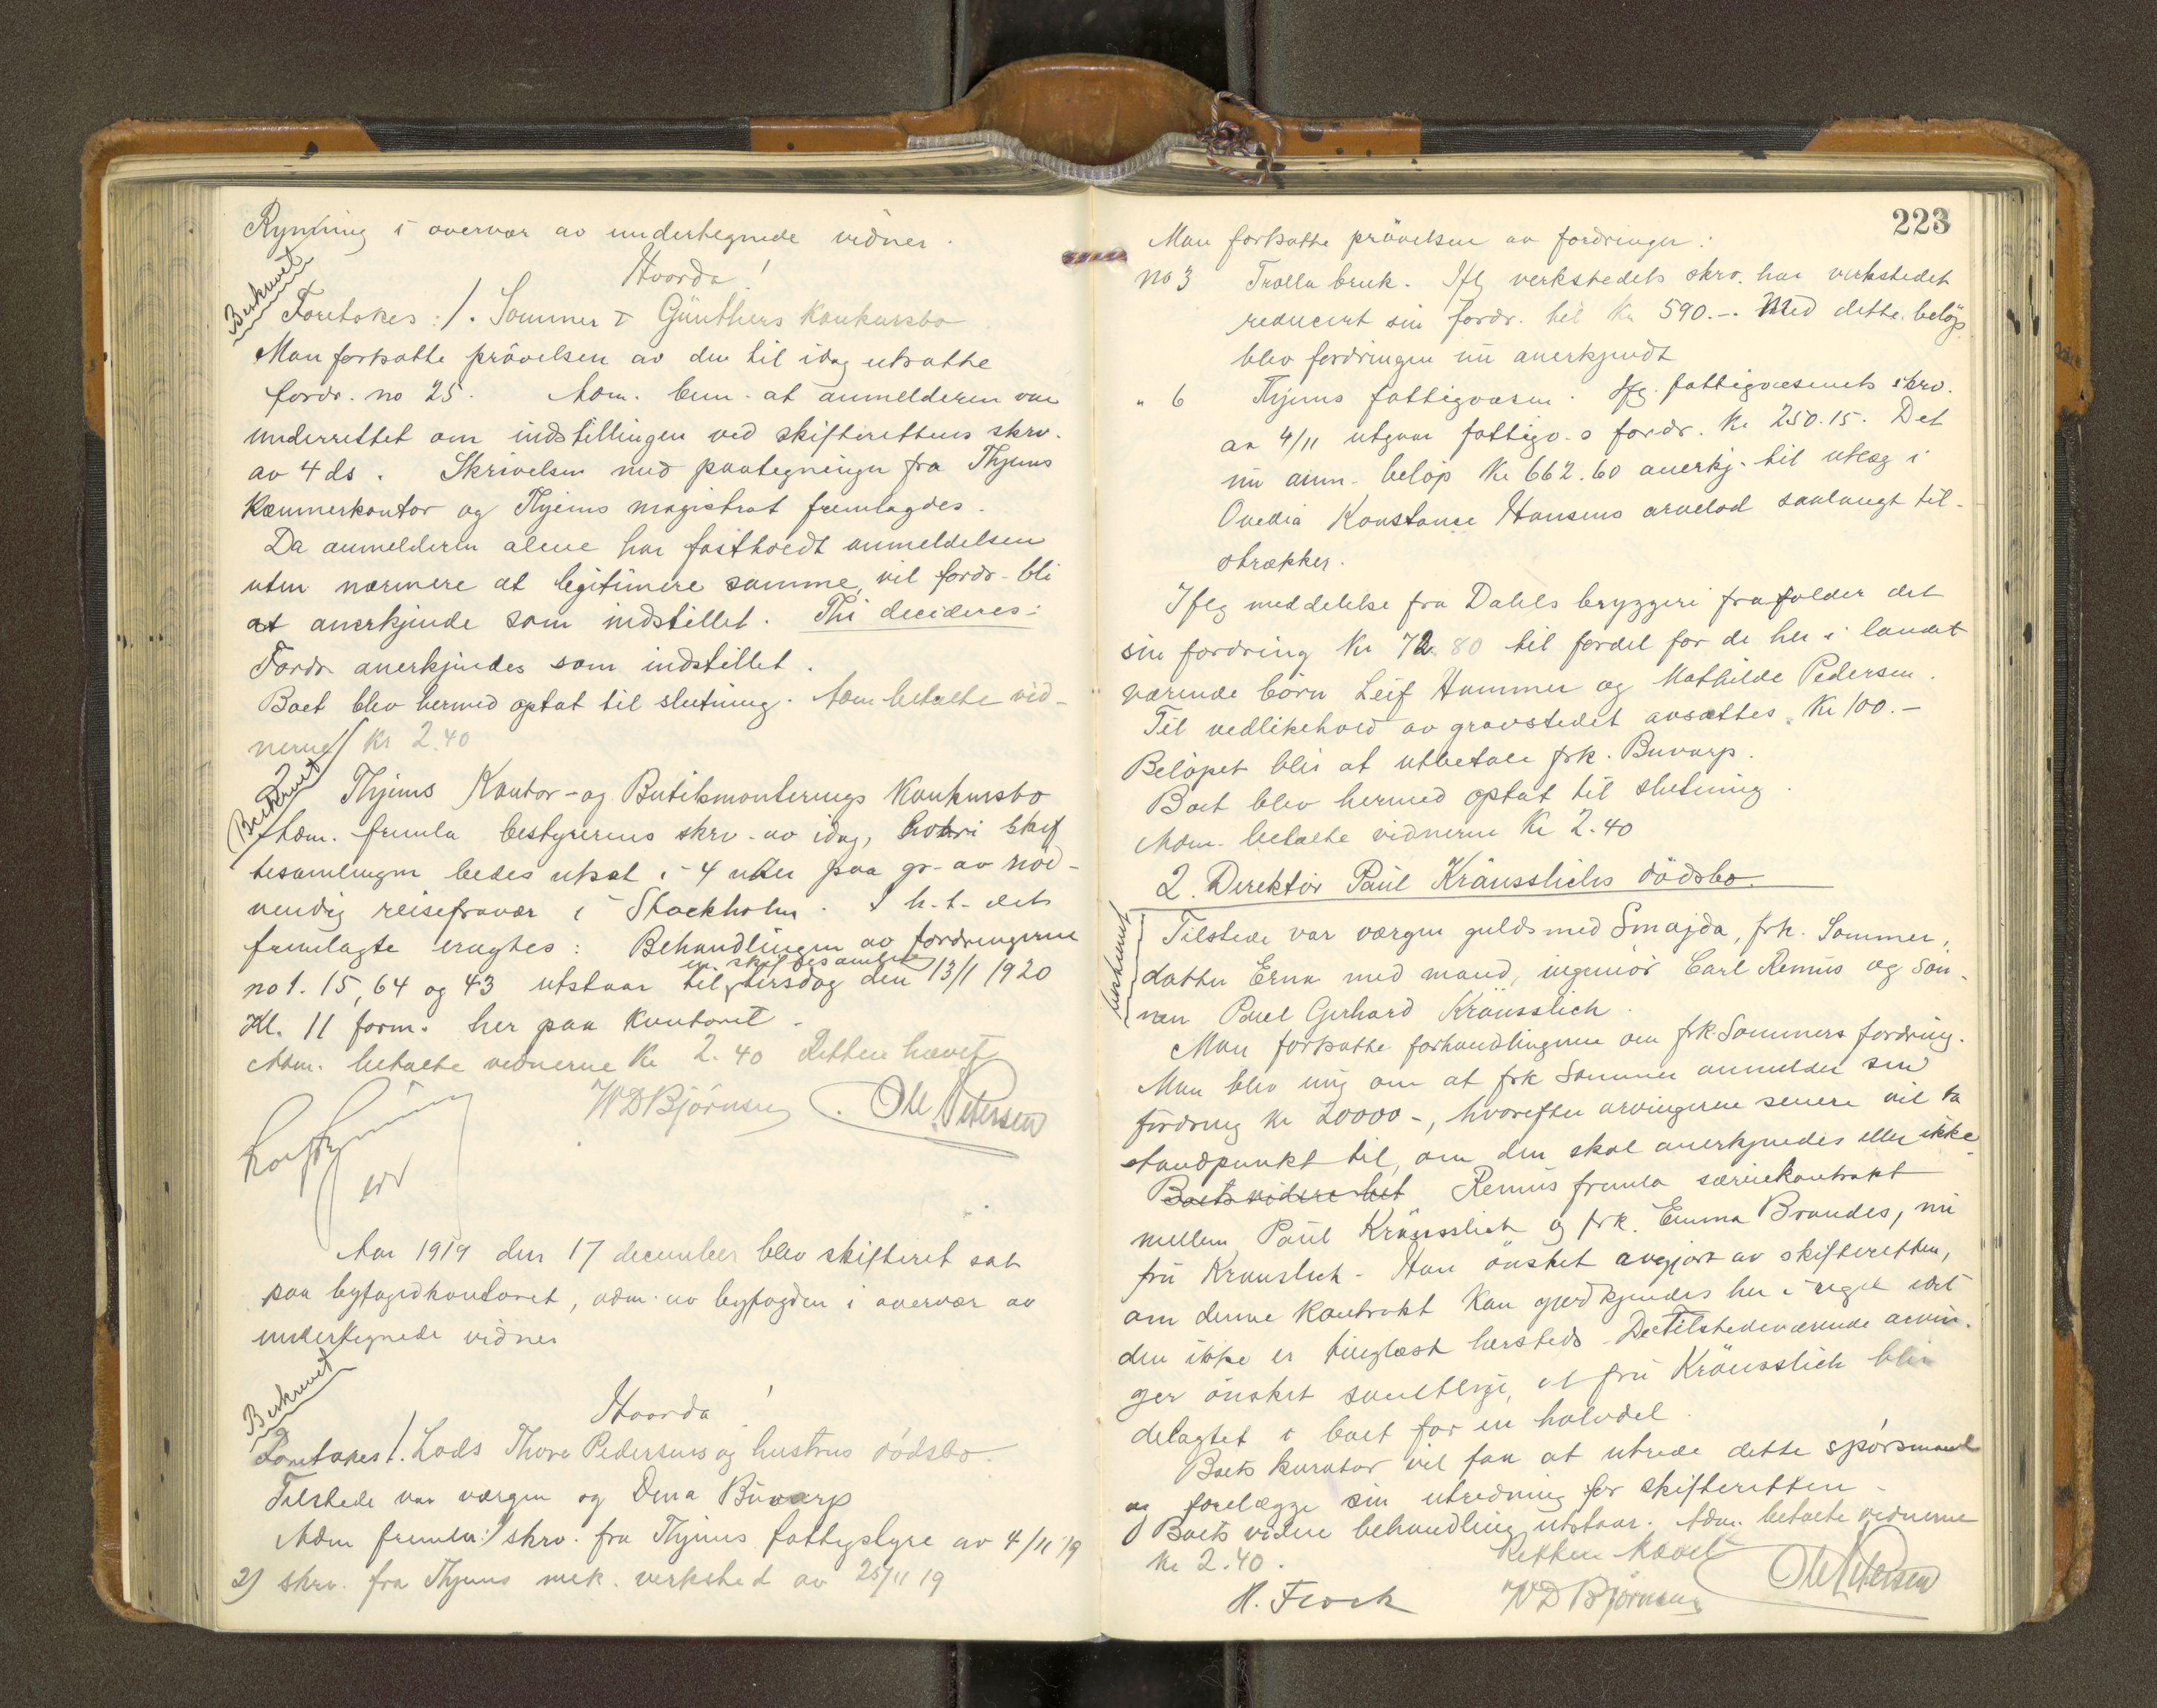 Rynning i overvær av undertegnede vidner.
Hvorda!
Beskrevet
Foretokes: 1. Sommer & Günthers konkursbo
Man fortsatte prövelsen av den til idag utsatte
fordr. no 25. Adm. bem. at anmelderen var
underrettet om indstillingen ved skifterettens skrv.
av 4 ds. Skrivelsen med paategninger fra Thjems
kæmnerkontor og Thjems magistrat fremlagdes.
Da anmelderen alene har fastholdt anmeldelsen
uten nærmere at legitimere samme, vil fordr. bli
at anerkjende som indstillet. Thi decideres:
Fordr. anerkjendes som indstillet.
Boet blev hermed optat til slutning. Adm. betalte vid-
nerne Kr 2.40
Beskrevet
2 Thjems Kontor- og Butikmonterings konkursbo
Adm. fremla bestyrerens skrv. av idag, hvori skif
tesamlingen bedes utsat i 4 uker paa gr. av nöd-
vendig reisefravær i Stockholm. I h. t. det
fremlagte eragtes: Behandlingen av fordringerne
no 1. 15, 64 og 43 utstaar til tirsdag den 13/1 1920
skiftesamling
Kl. 11 form. her paa kontoret.
Adm. betalte vidnerne Kr 2.40 Retten hævet
W D Björnsen Ole Petersen
Aar 1919 den 17 december blev skifteret sat
paa byfogedkontoret, adm. av byfogden i overvær av
undertegnede vidner
Hvorda!
Beskrevet
Foretokes 1. Lods Thore Pedersens og hustrus dödsbo.
Tilstede varværgen og Dina Buvarp
Adm fremla: 1/ skrv. fra Thjems fattigstyre av 4/11 19
2) skrv. fra Thjems mek. verksted av 25/11 19
223
Man fortsatte prövelsen av fordringer:
no 3 Trolla bruk. Iflg verkstedets skrv. har verkstedet
reducert sin fordr. til Kr 590.-. Med dette belöp
blev fordringen nu anerkjendt
" 6 Thjems fattigvæsen. Iflg. fattigvæsenets skrv.
av 4/11 utgaar fattigv.s fordr. Kr 250.15. Det
nu anm. belöp Kr 662.60 anerkj. til utlæg i
Ovedia Konstanse Hansens arvelod saalangt til-
strækker.
Iflg meddelelse fra Dahls bryggeri frafolder det
sin fordring Kr 72.80 til fordel for de her i landet
værende börn Leif Hammer og Mathilde Pedersen.
Til vedlikehold av gravstedet avsattes Kr 100.-
Belöpet blir at utbetale frk. Buvarp.
Boet blev hermed optat til slutning.
Adm. betalte vidnerne Kr 2.40
2. Direktör Paul Kräusslichs dödsbo.
beskrevet
Tilstede var værgen guldsmed Smajda, frk. Sommer,
datter Erna med mand, ingeniör Carl Remus og sön-
nen Paul Gerhard Kräusslich.
Man fortsatte forhandlingerne om frk. Sommers fordring.
Man blev enig om at frk Sommer anmelder sin
fordring Kr 20000-, hvorefter arvingerne senere vil ta
standpunkt til, om den skal anerkjendes eller ikke.
Boets videre bet Remus fremla særeiekontrakt
mellem Paul Kräusslich og frk. Emma Brandes, nu
fru Krauslich. Han önsket avgjort av skifteretten,
om denne kontrakt kan godkjendes her i riget idet
den ikke er tinglæst hersteds. De tilstedeværende arvin-
ger önsket samtlige, at fru Kräusslich blir
delagtet i boet for en halvdel.
Boets kurator vil faa at utrede dette spörsmaal
og forelægge sin utredning for skifteretten.
Boets videre behandling utstaar. Adm. betalte vidnerne
Kr 2.40. Retten hævet
H. Frock W D Björnsen Ole Petersen